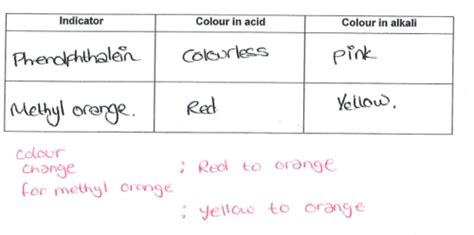 Indicator Colour in acid Colour in alkali
Phenolphthalein Colourless pink
Methyl orange. Red Yellow.
colour
change ; Red to orange
for methyl orange
; yellow to orange